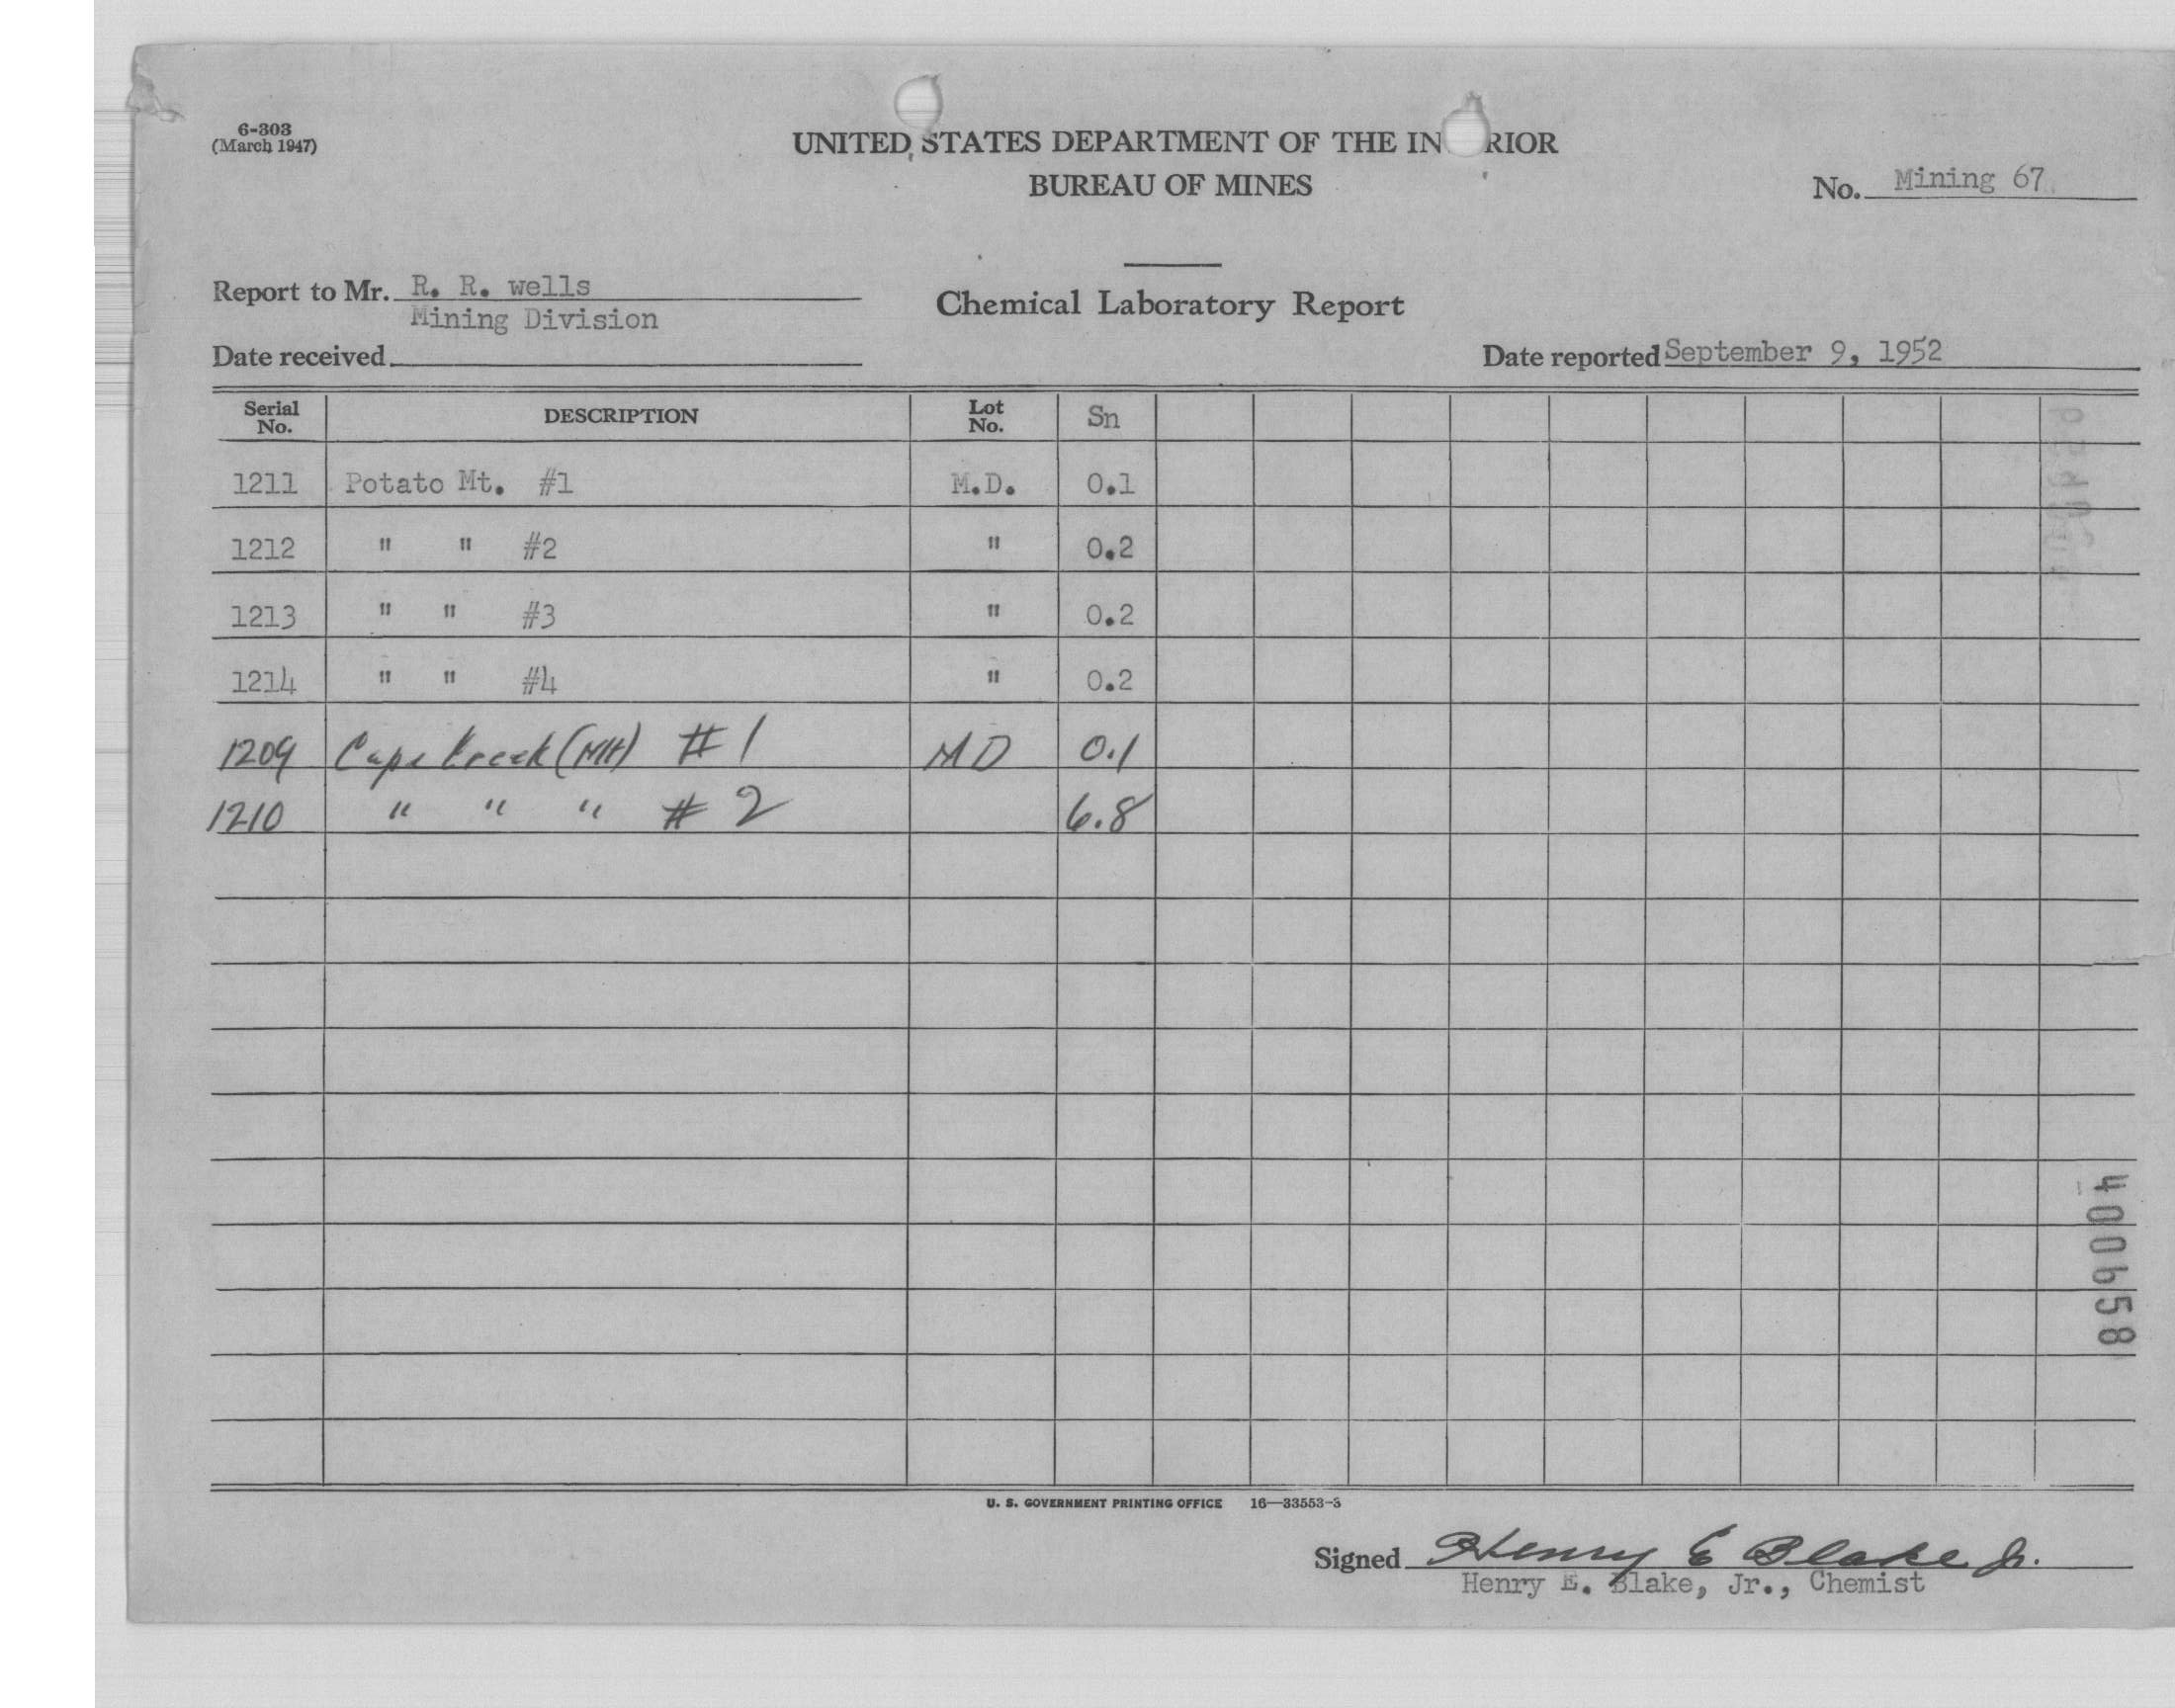 6-303
(March 1947)
UNITED STATES DEPARTMENT OF THE IN RIOR
BUREAU OF MINES
No. Mining 67
Report to Mr. R. R. wells
Mining Division
Chemical Laboratory Report
Date received
Date reported September 9, 1952
Serial No. DESCRIPTION Lot No. Sn
1211 Potato Mt. #1 M.D. 0.1
1212 " " #2 " 0.2
1213 " " #3 " 0.2
1214 " " #4 " 0.2
1209 Cape Creek (MH) #1 MD 0.1
1210 " " " #2 6.8
400658
U. S. GOVERNMENT PRINTING OFFICE 16—33553-3
Signed Henry E Blake Jr.
Henry E. Blake, Jr., Chemist